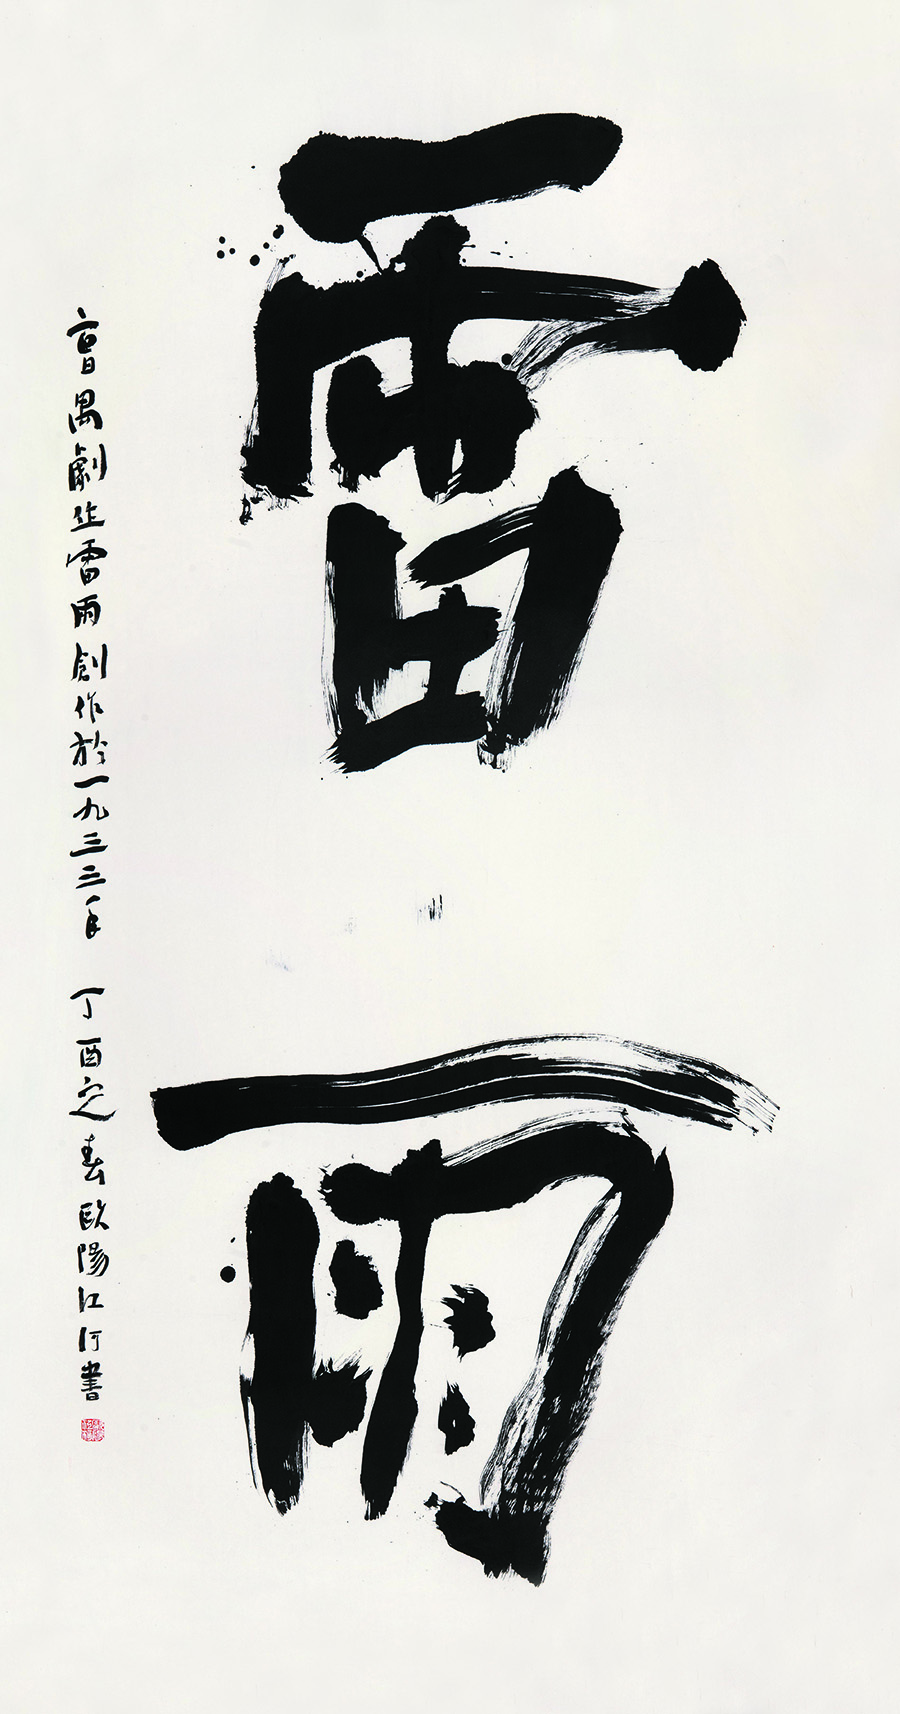 雷雨
曹禺劇作雷雨創作於一九三三年 丁酉之春歐陽江河書